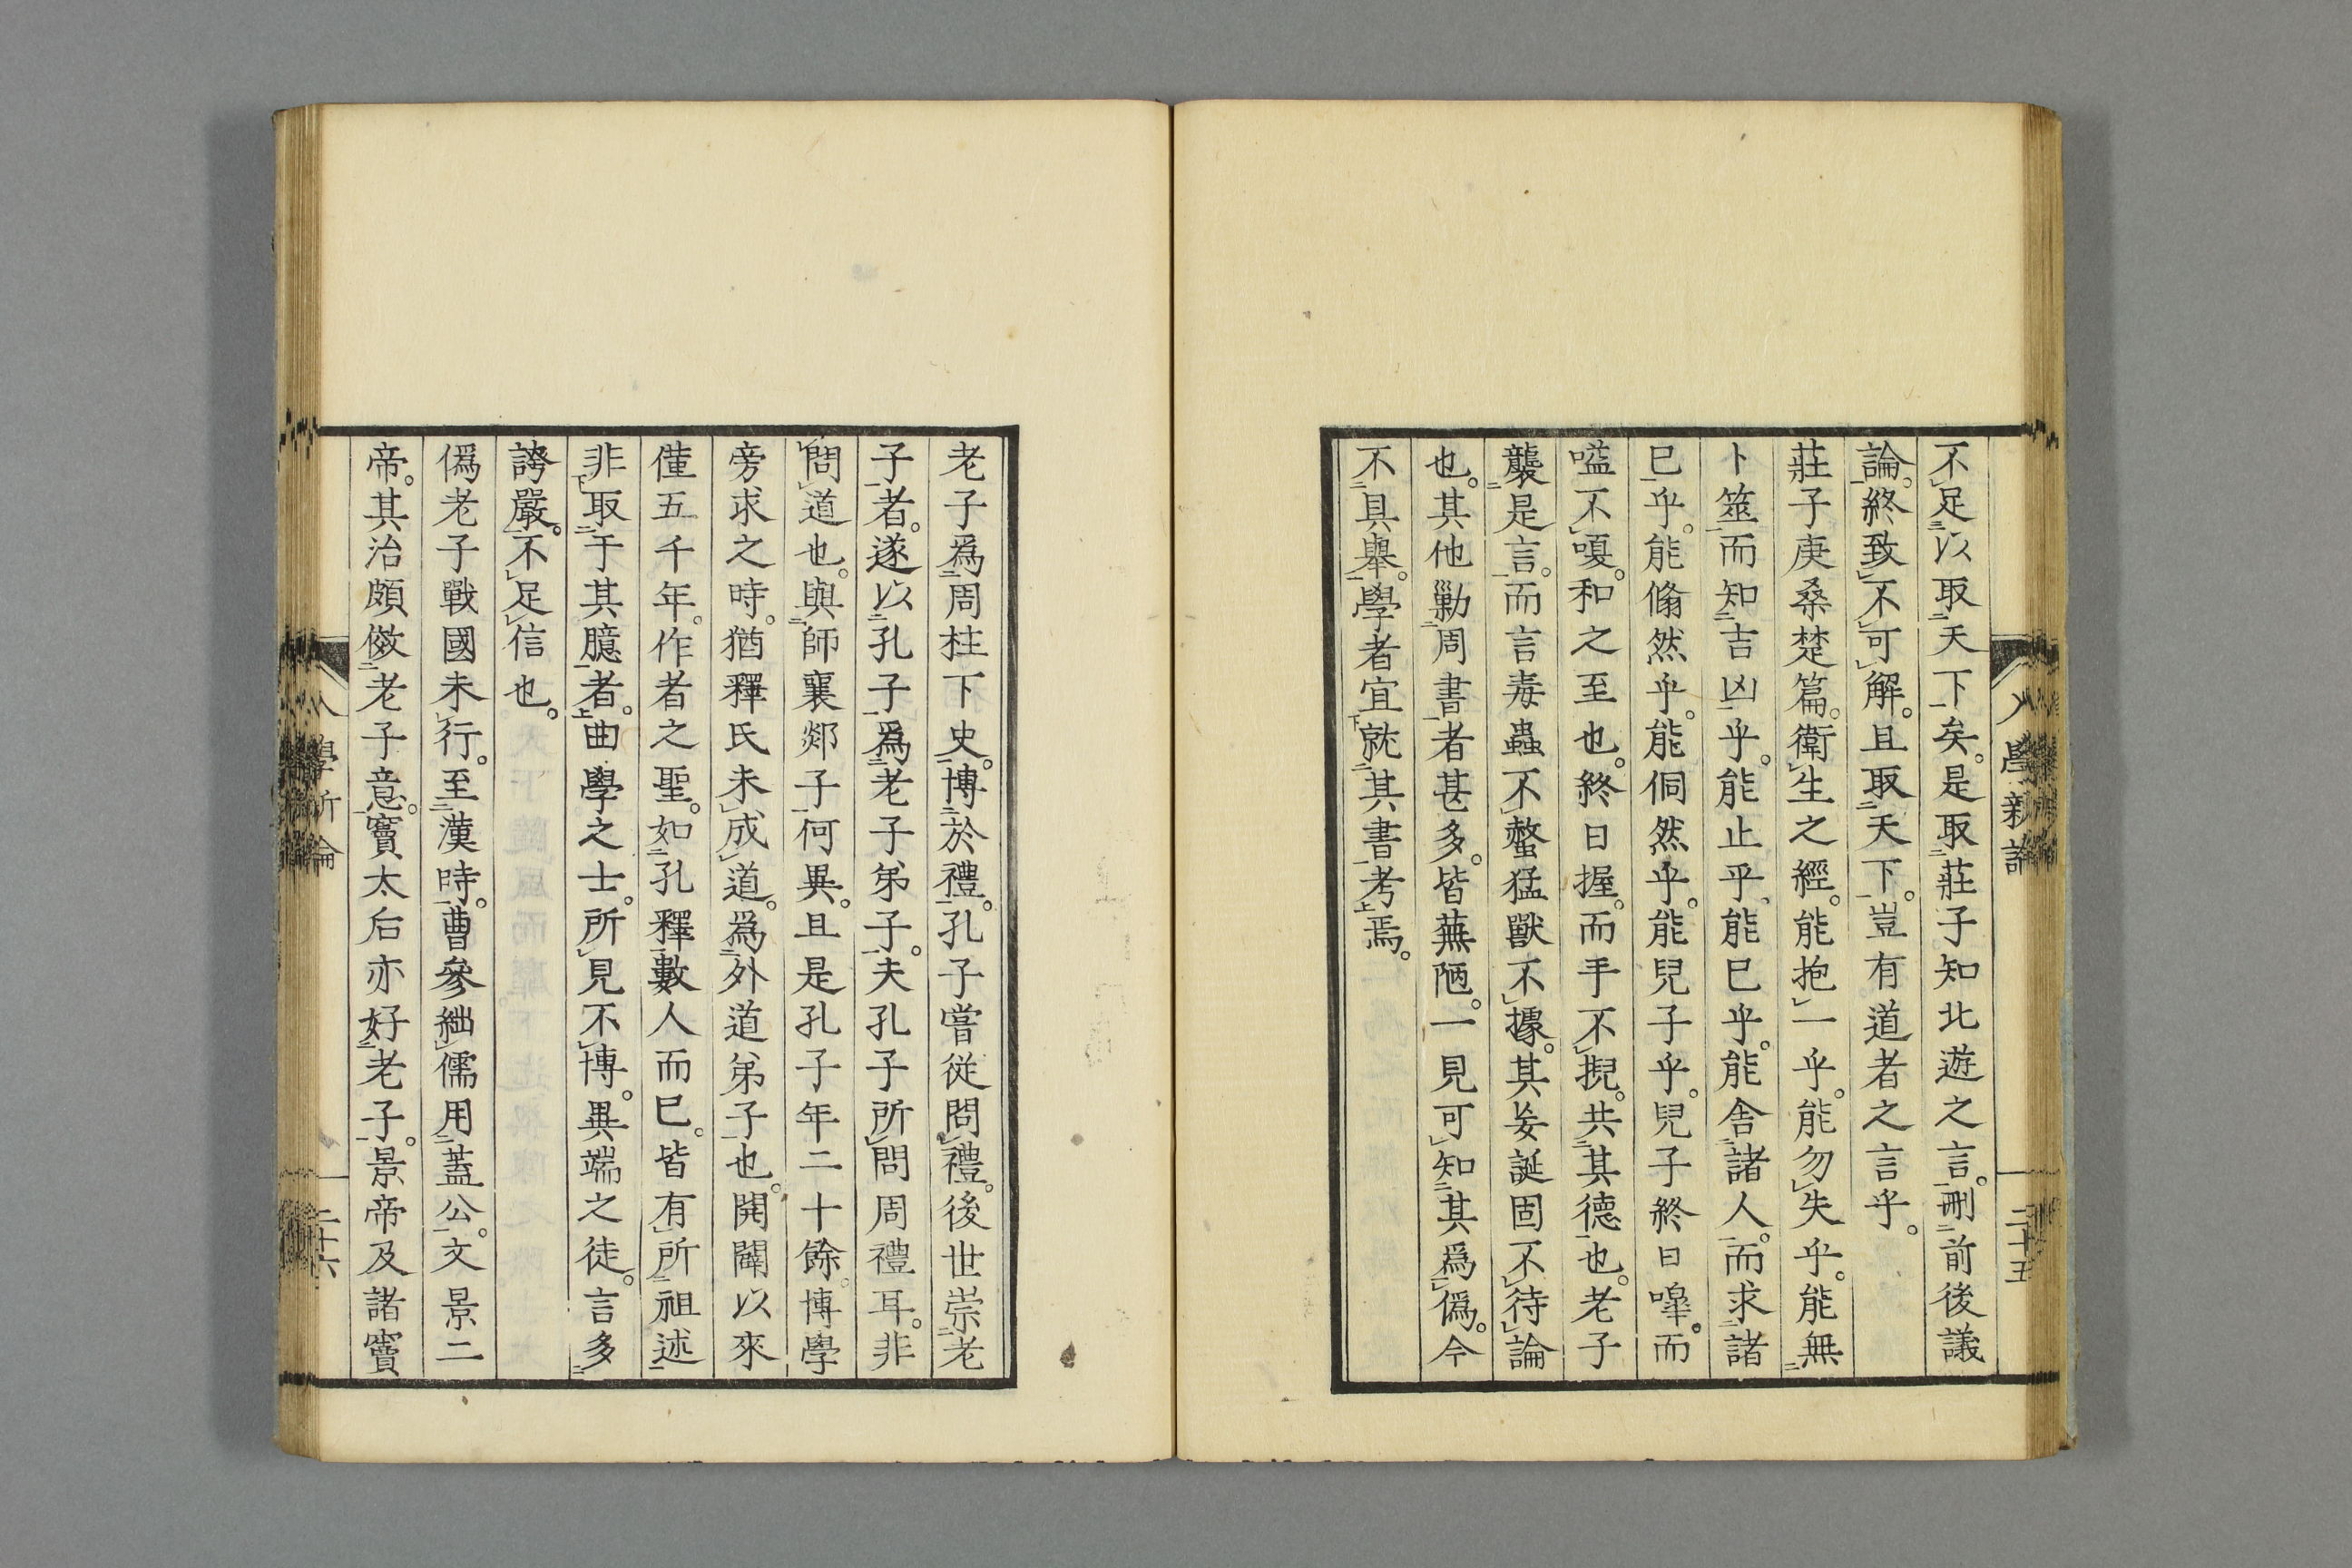 不足以取天下矣。是取莊子知北遊之言。刪前後議
論。終致不可解。且取天下。豈有道者之言乎。
莊子庚桑楚篇。衛生之經。能抱一乎。能勿失乎。能無
卜筮而知吉凶乎。能止乎。能已乎。能舍諸人。而求諸
已乎。能翛然乎。能侗然乎。能兒子乎。兒子終日嘷。而
嗌不嗄。和之至也。終日握。而手不掜。共其德也。老子
襲是言。而言毒蟲不螫猛獸不據。其妄誕固不待論
也。其他勦周書者甚多。皆蕪陋。一見可知其爲僞。今
不具舉。學者宜就其書考焉。
老子爲周柱下史。博於禮。孔子嘗從問禮。後世崇老
子者。遂以孔子爲老子弟子。夫孔子所問周禮耳。非
問道也。與師襄郯子何異。且是孔子年二十餘。博學
旁求之時。猶釋氏未成道。爲外道弟子也。開闢以來
僅五千年。作者之聖。如孔釋數人而已。皆有所祖述
非取于其臆者。曲學之士。所見不博。異端之徒。言多
誇嚴。不足信也。
僞老子戰國未行。至漢時。曹參絀儒用蓋公。文景二
帝。其治頗倣老子意。竇太后亦好老子。景帝及諸竇
八學新論
二十六